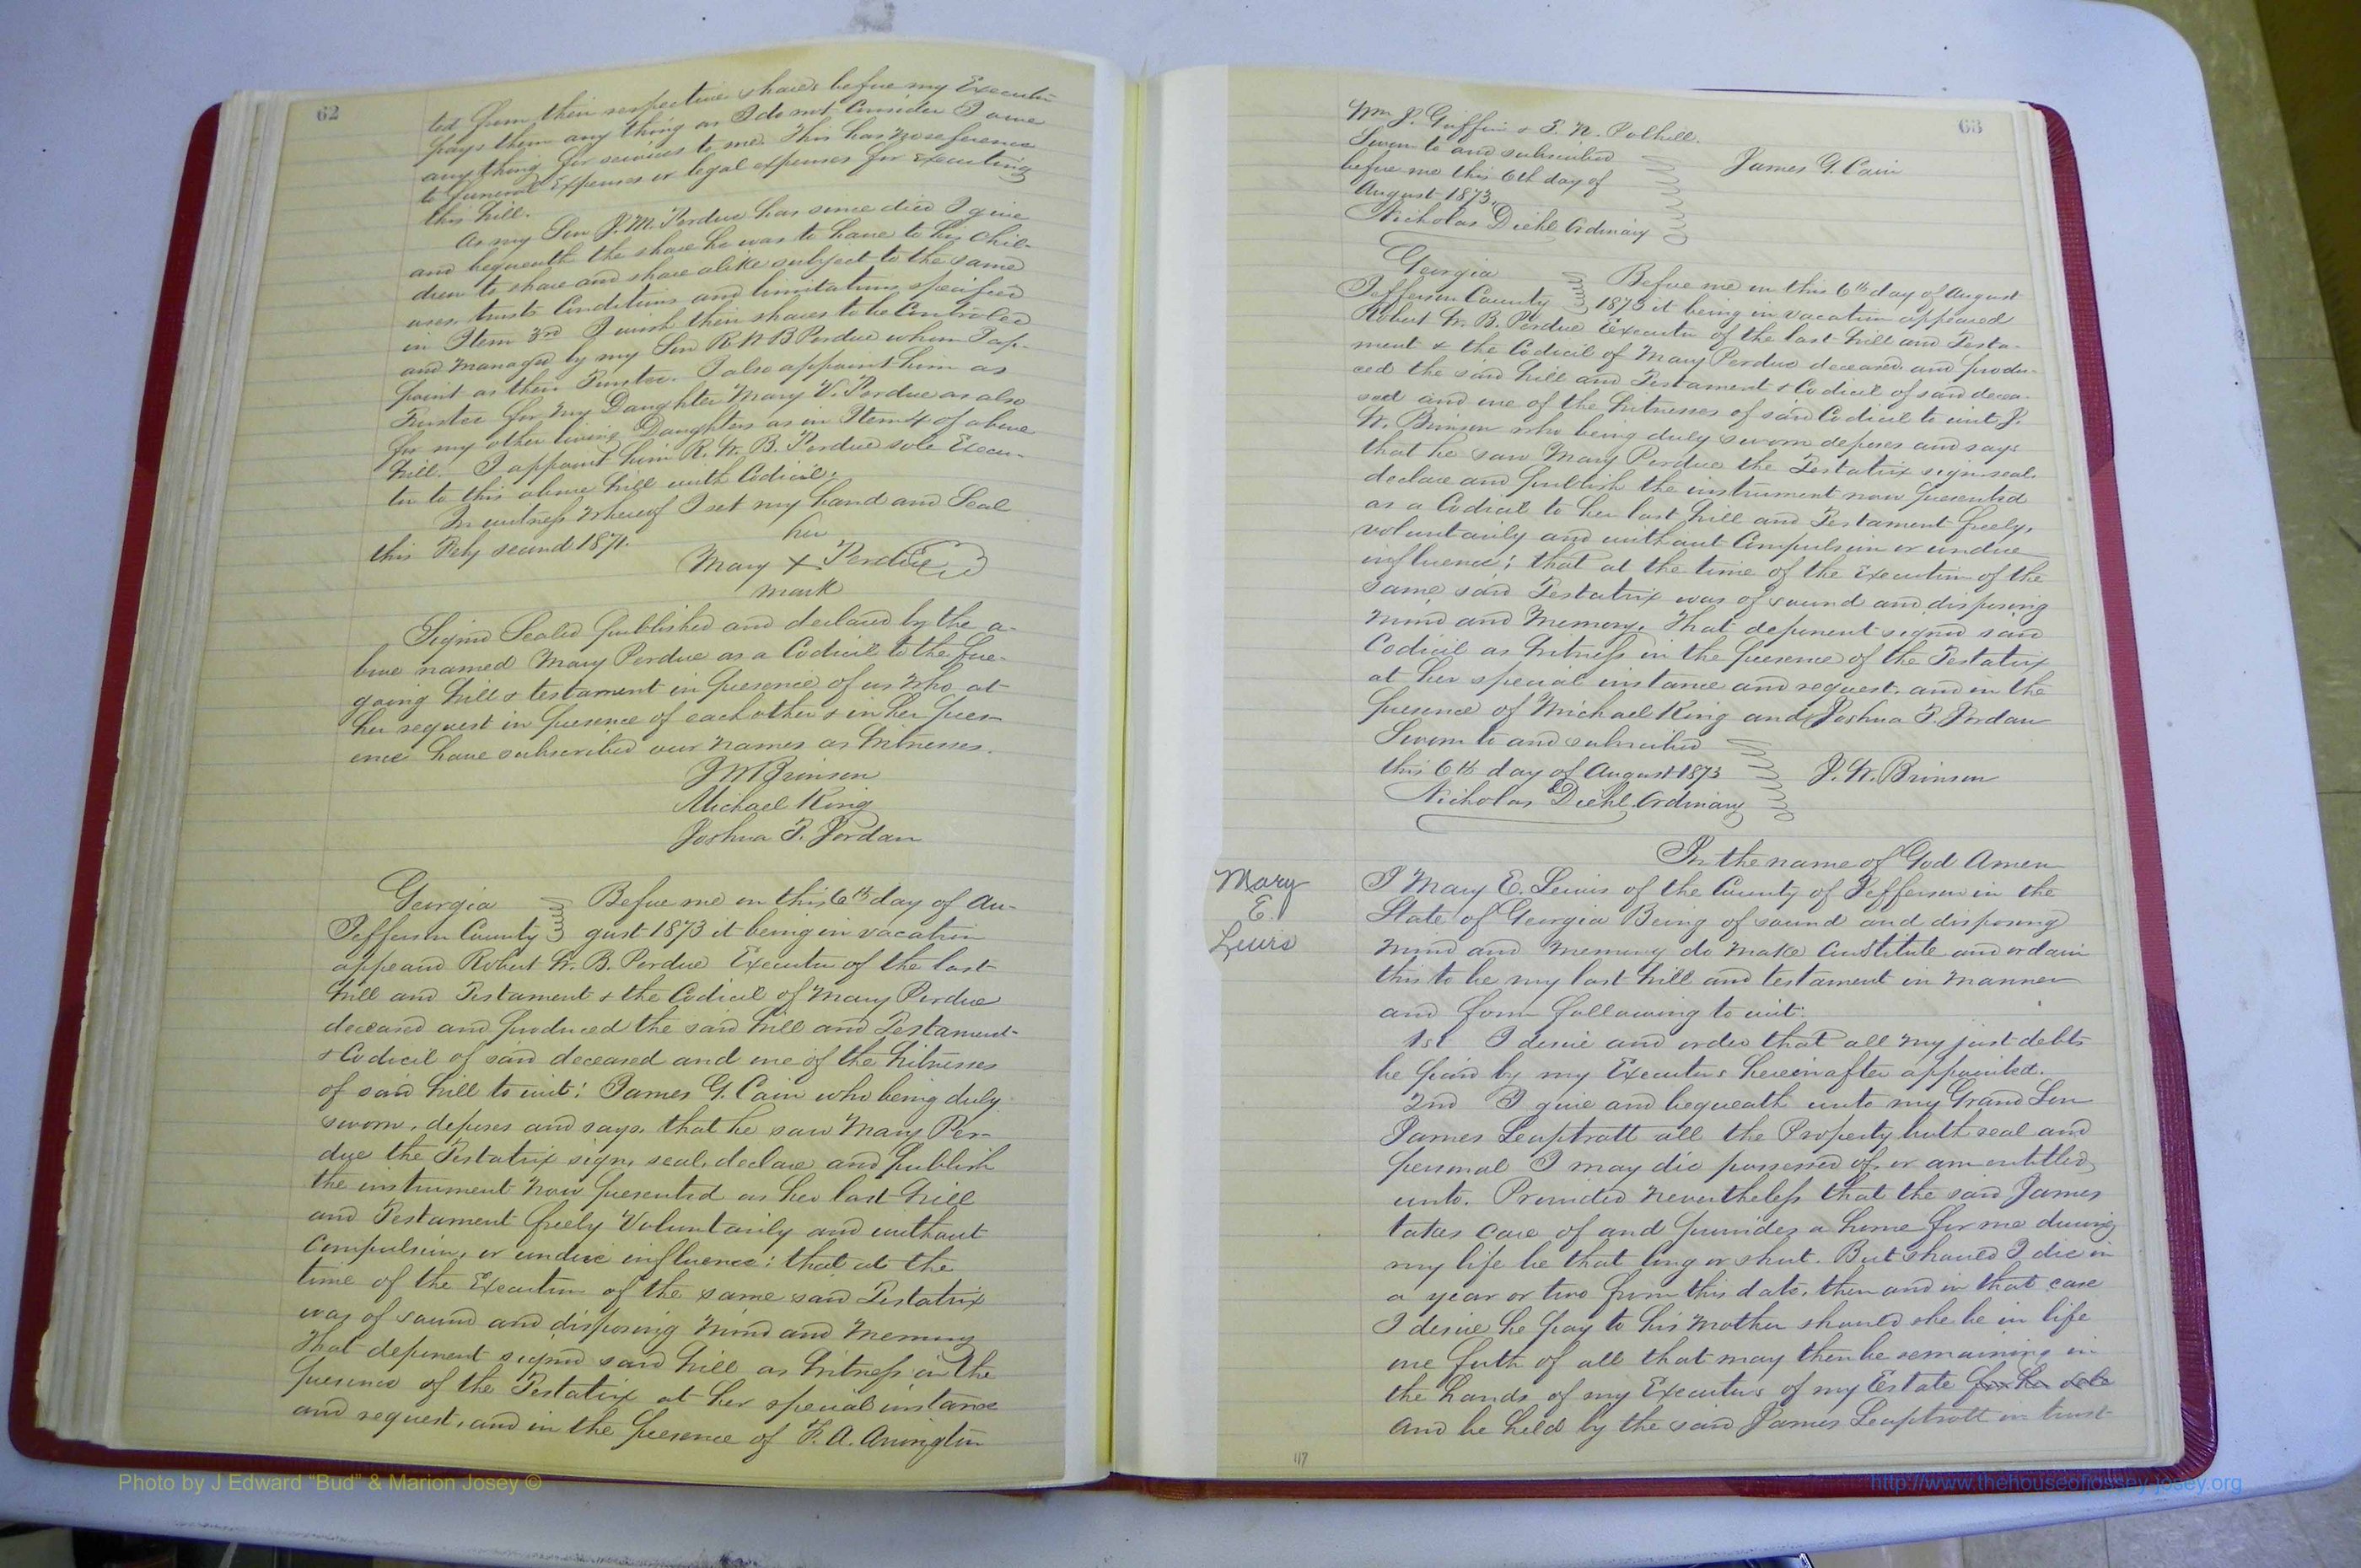 62
ted from their respective shares before my Executor
pays them any thing as I do not Consider I owe
any thing for services to me. This has no reference
to funeral Expenses or legal expenses for Executing
this Will.
As my Son J. M. Perdue has since died I give
and bequeath the share he was to have to his Chil-
dren to share and share alike subject to the same
uses, trusts Conditions and limitations specified
in Item 3rd I wish their shares to be Controled
and managed by my Son R. W B Perdue whom I ap-
point as their Trustee. I also appoint him as
Trustee for my Daughter Mary V. Perdue as also
for my other living Daughters as in Item 4 of above
Will. I appoint him R. W. B. Perdue sole Execu-
tor to this above Will with Codicil.
In witness Whereof I set my hand and Seal
this Feby second 1871.
her
Mary X Perdue
mark
Signed Sealed published and declared by the a-
bove named Mary Perdue as a Codicil to the fore-
going Will & testament in presence of us Who at
her request in presence of each other & in her pres-
ence have subscribed our names as Witnesses.
J W Brinson
Michael King
Joshua T. Jordan
Georgia Before me on this 6th day of Au-
Jefferson County gust 1873 it being in vacation
appeared Robert W. B. Perdue Executor of the last
Will and Testament & the Codicil of Mary Perdue
deceased and produced the said Will and Testament
& Codicil of said deceased and one of the Witnesses
of said Will to wit: James G. Cain who being duly
sworn, deposes and says, that he saw Mary Per-
due the Testatrix sign, seal, declare and publish
the instrument now presented as her last Will
and Testament freely Voluntarily and without
Compulsion, or undue influence; that at the
time of the Execution of the same said Testatrix
was of sound and disposing Mind and Memory
That deponent signed said Will as Witness in the
presence of the Testatrix at her special instance
and request, and in the presence of F. A. Arington
63
Wm J. Griffin & T. N. Polhill.
Sworn to and subscribed
before me this 6th day of
August 1873.
James G. Cain
Nicholas Diehl Ordinary
Georgia Before me on this 6th day of August
Jefferson County 1873 it being in vacation appeared
Robert W. B. Perdue Executor of the last Will and Testa-
ment & the Codicil of Mary Perdue deceased, and produ-
ced the said Will and Testament & Codicil of said decea-
sed and one of the Witnesses of said Codicil to wit J.
W. Brinson who being duly sworn deposes and says
that he saw Mary Perdue the Testatrix sign, seal,
declare and publish the instrument now presented
as a Codicil to her last Will and Testament freely,
voluntarily and without Compulsion or undue
influence; that at the time of the Execution of the
same said Testatrix was of sound and disposing
mind and memory. That deponent signed said
Codicil as Witness in the presence of the Testatrix
at her special instance and request, and in the
presence of Michael King and Joshua T. Jordan
Sworn to and subscribed
this 6th day of August 1873 J. W. Brinson
Nicholas Diehl Ordinary
In the name of God Amen
Mary
E.
Lewis
I Mary E. Lewis of the County of Jefferson in the
State of Georgia Being of sound and disposing
mind and memory do make Constitute and ordain
this to be my last Will and testament in manner
and form following to wit:
1st I desire and order that all my just debts
be paid by my Executors hereinafter appointed.
2nd I give and bequeath unto my Grand Son
James Leaptrott all the Property both real and
personal I may die possessed of, or am entitled
unto. Provided nevertheless that the said James
takes care of and provides a home for me during
my life be that long or short. But should I die in
a year or two from this date, then and in that case
I desire he pay to his mother should she be in life
one forth of all that may then be remaining in
the hands of my Executors of my Estate for her sole
and be held by the said James Leaptrott in trust
117
Photo by J Edward "Bud" & Marion Josey ©
http://www.thehouseofjossey-josey.org